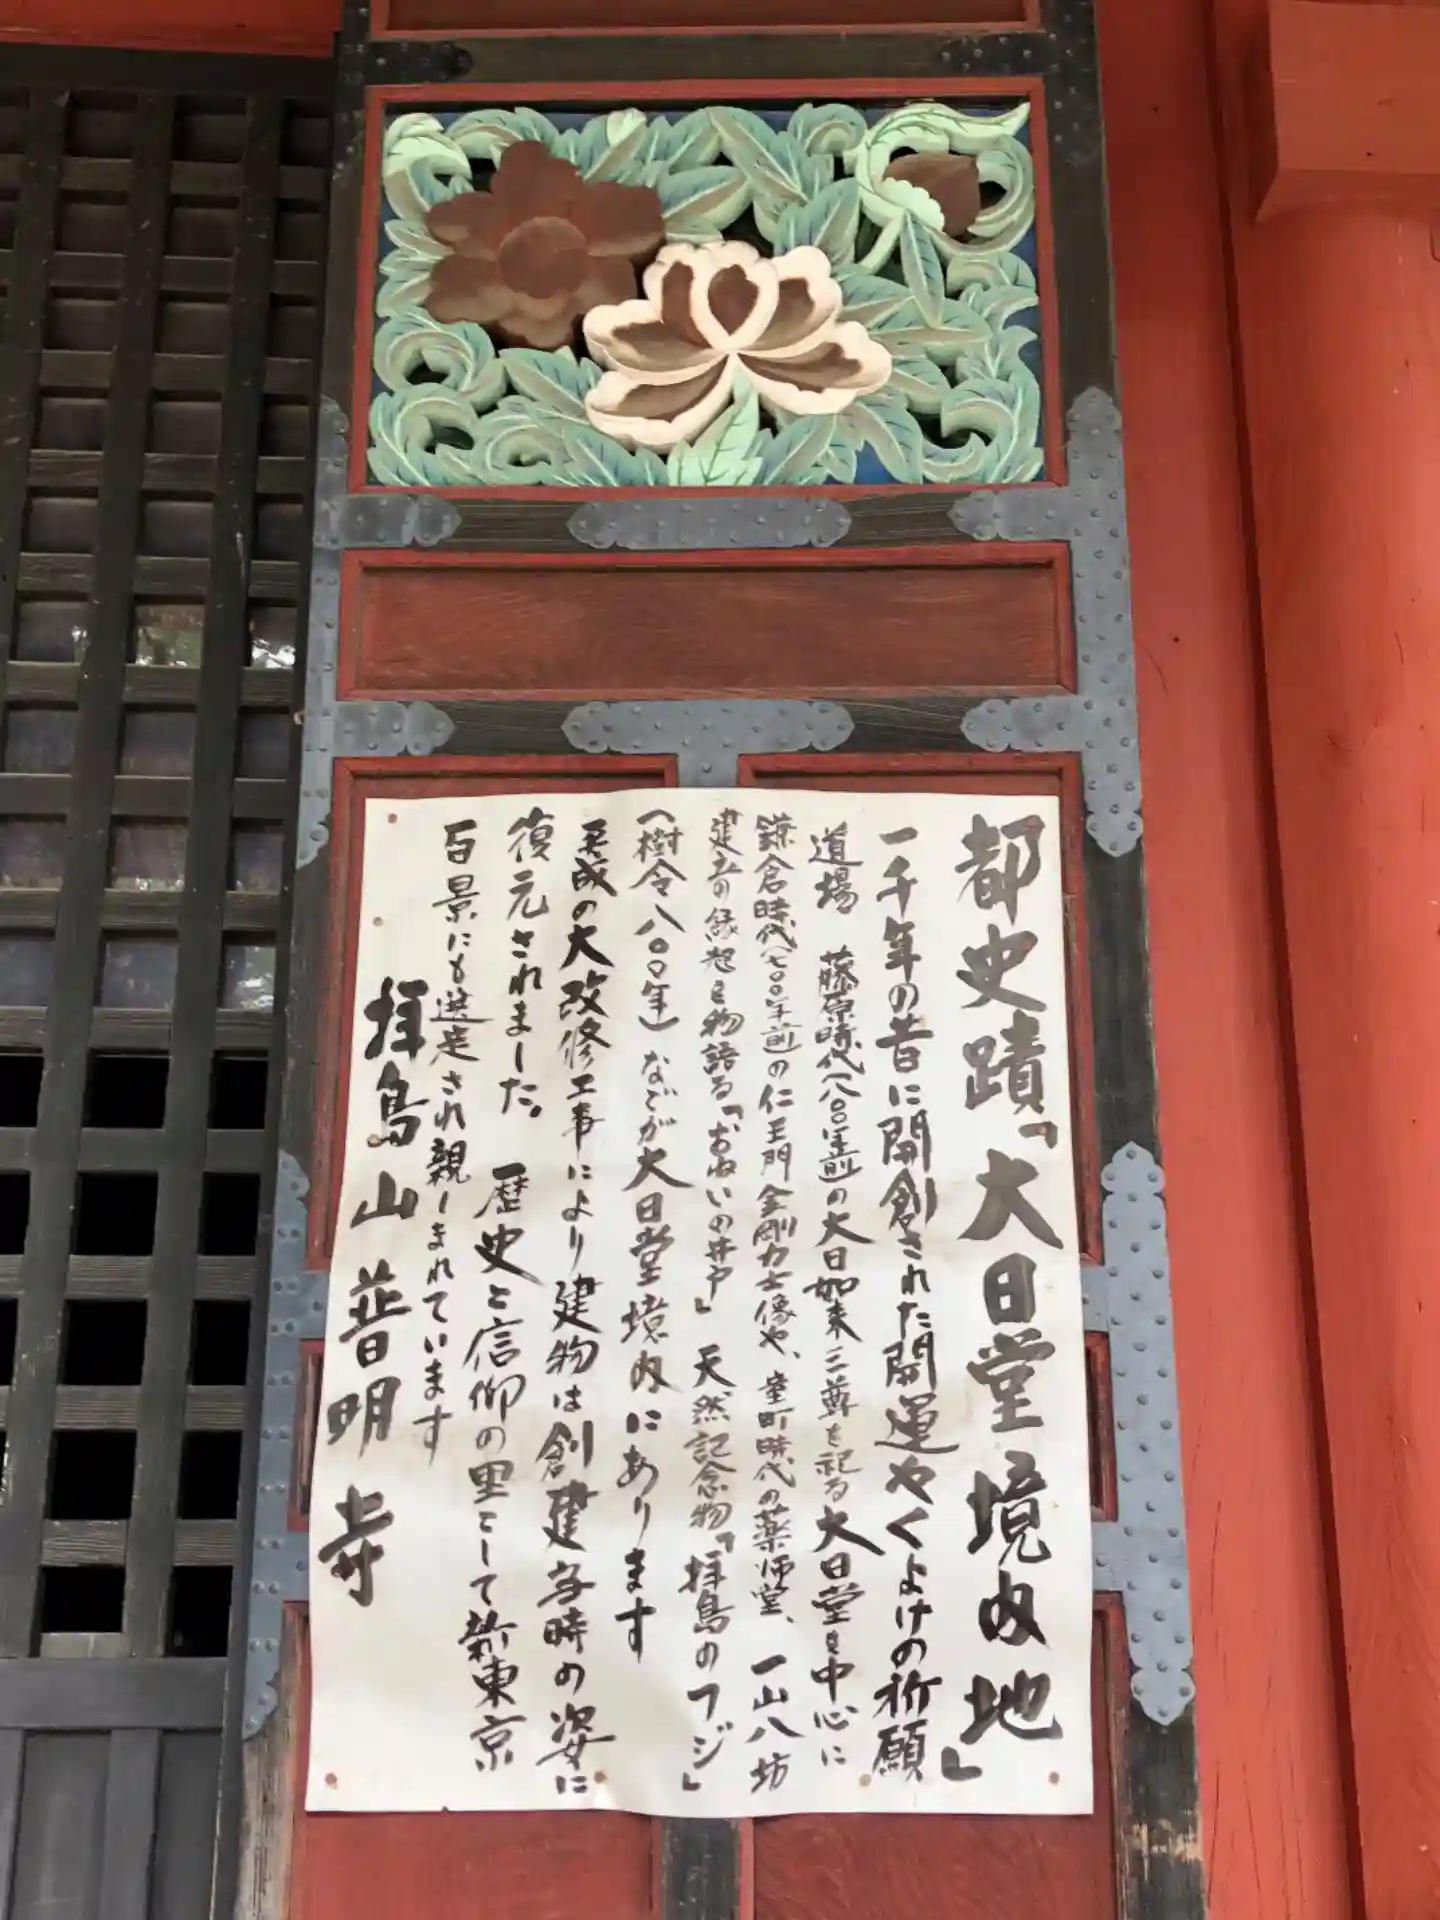 都史蹟「大日堂境内地」
一千年の昔に開創された開運やくよけの祈願
道場 藤原時代(八〇〇年前)の大日如来三尊を祀る大日堂を中心に
鎌倉時代(七〇〇年前)の仁王門金剛力士像や、室町時代の薬師堂、一山八坊
建立の縁起を物語る「おねいの井戸」 天然記念物「拝島のフジ」
(樹令八〇〇年)などが大日堂境内にあります
平成の大改修工事により建物は創建当時の姿に
復元されました。 歴史と信仰の里として新東京
百景にも選定され親しまれています
拝島山普明寺